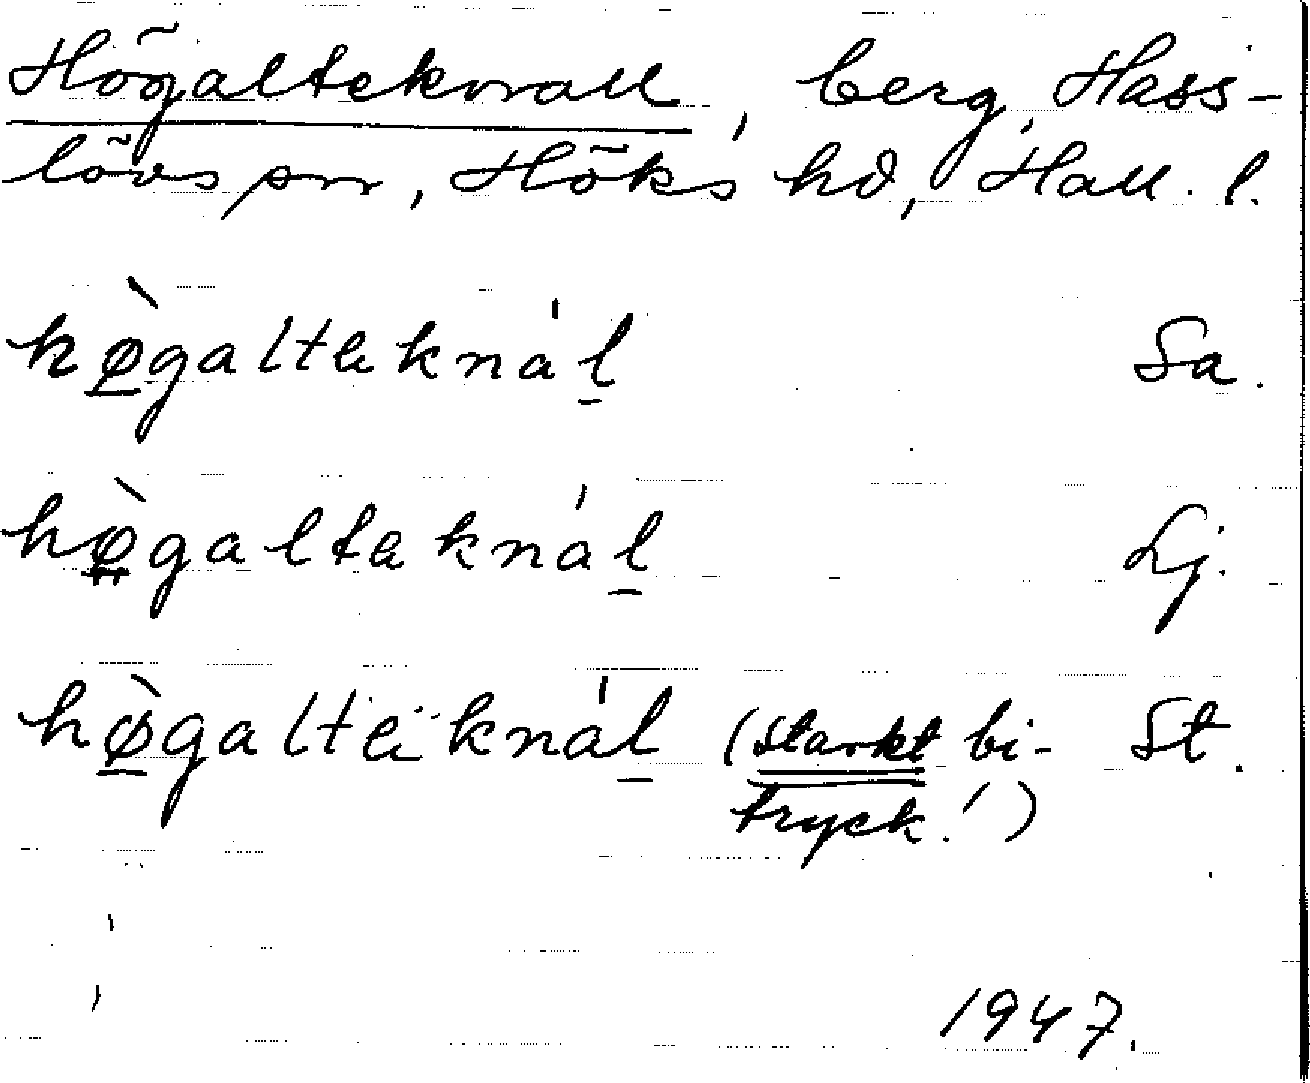 Högaltekvall, berg, Hass-
lövs sn, Höks hd, Hall. l.
hø̀galtəkná'l Sa.
hø̀galtəkná'l Lj.
hø̀galtəkná'l (starkt bi- St.
tryck!)
1947.